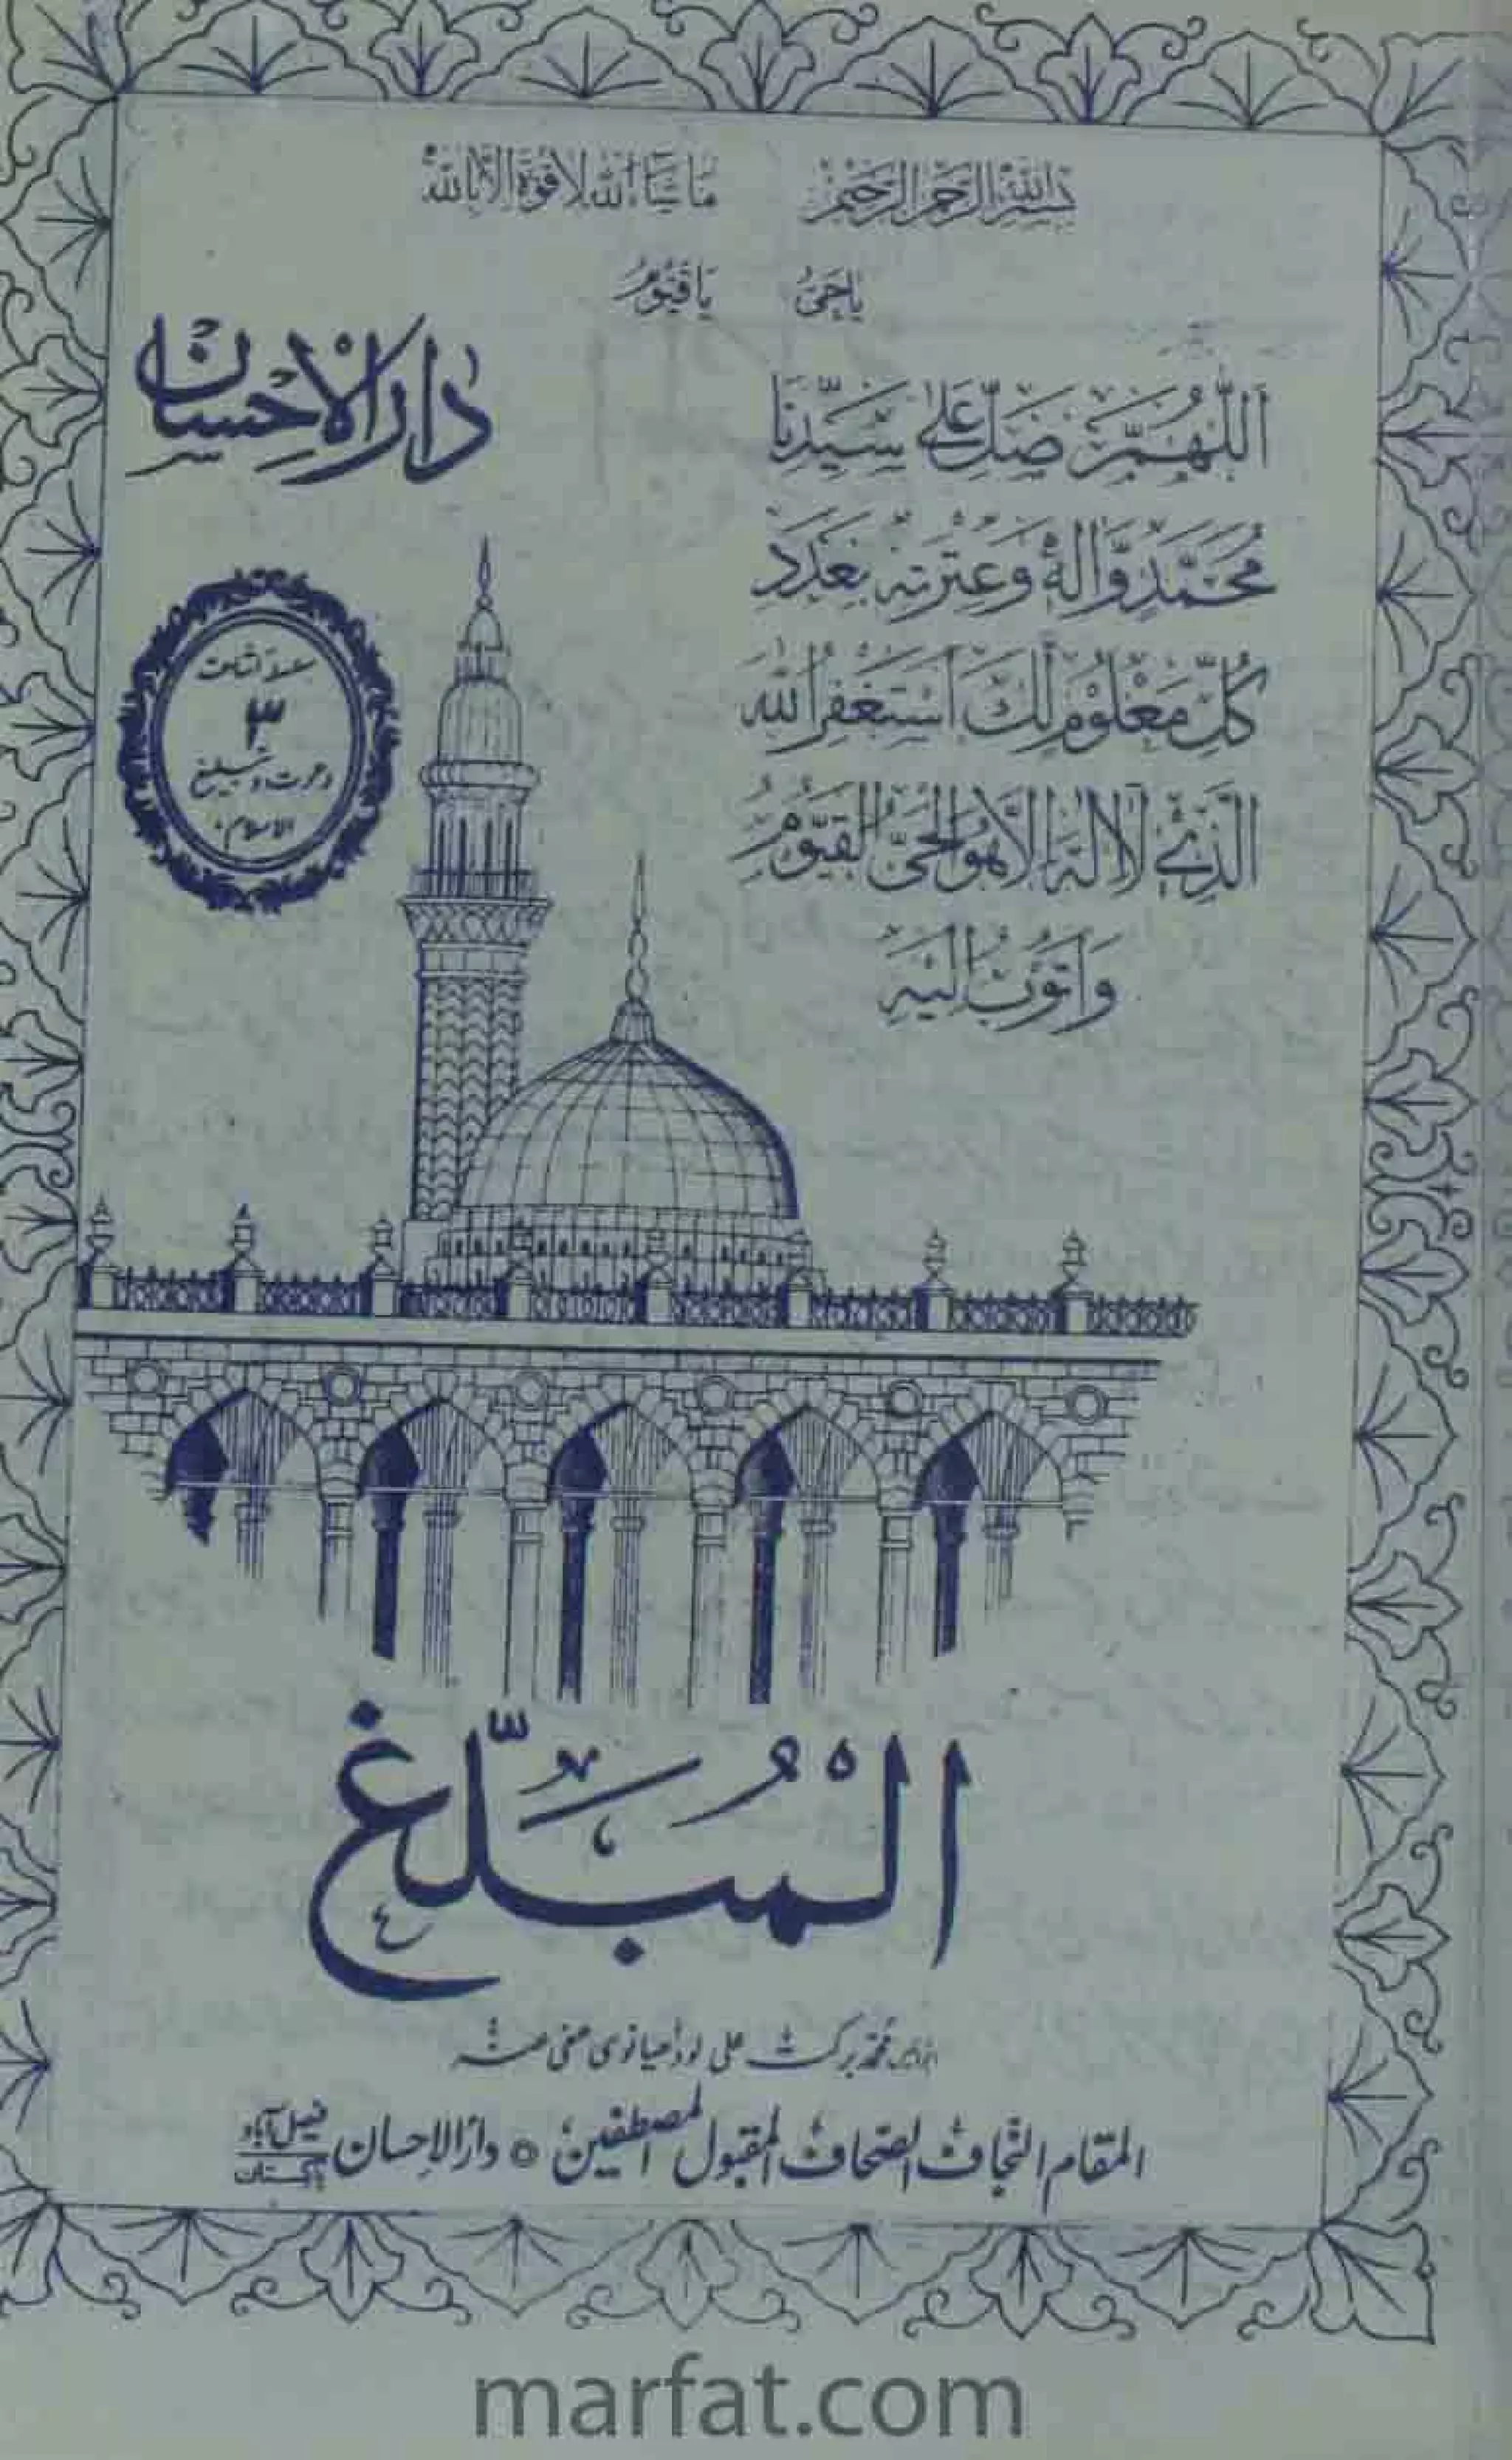 بِسْمِ اللهِ الرَّحْمٰنِ الرَّحِيْمِ مَا شَاءَ اللهُ لَا قُوَّةَ اِلَّا بِاللهِ
يَا حَيُّ يَا قَيُّوْمُ
دارالاحسان
اَللّٰهُمَّ صَلِّ عَلٰى سَيِّدِنَا
مُحَمَّدٍ وَّاٰلِهٖ وَعِتْرَتِهٖ بِعَدَدِ
كُلِّ مَعْلُوْمٍ لَّكَ اَسْتَغْفِرُ اللهَ
الَّذِيْ لَا اِلٰهَ اِلَّا هُوَ الْحَيُّ الْقَيُّوْمُ
وَاَتُوْبُ اِلَيْهِ
سلسلۂ اشاعت
۳
دعوت و تبلیغ
الاسلام
المُبَلِّغ
محمد برکت علی لودھیانوی عفی عنہ
المقام النجاف الصحاف المقبول المصطفین ○ دارالاحسان فیصل آباد پاکستان
marfat.com